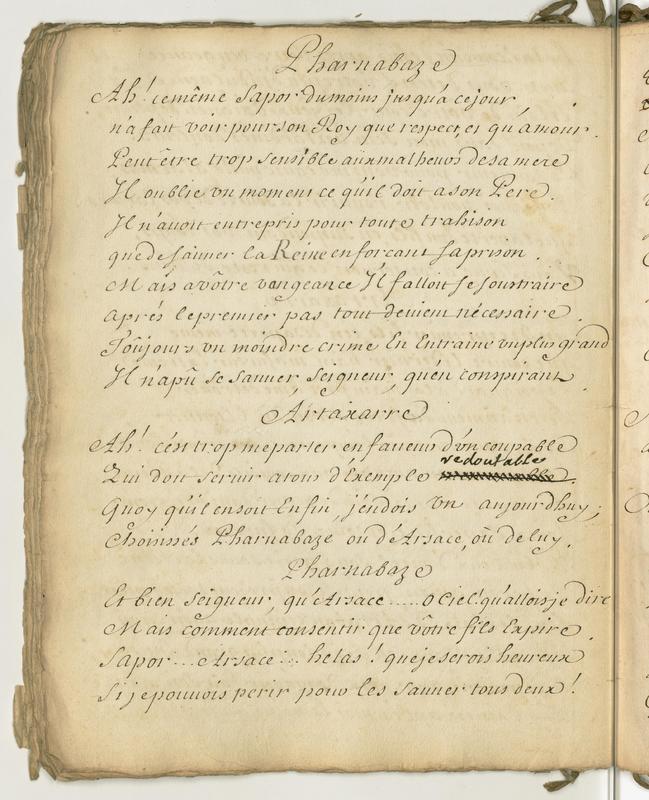 Pharnabaze
Ah! ce même Sapor du moins jusqu'a ce jour
n'a fait voir pour son Roy que respect, et qu'amour.
Peut être trop sensible aux malheurs de sa mere
Il oublie un moment ce qu'il doit a son Pere.
Il n'avoit entrepris pour toute trahison
que de sauver la Reine en forçant sa prison.
Mais a vôtre vengeance Il falloit se soustraire
après le premier pas tout devient nécessaire.
Toûjours un moindre crime En Entraine un plus grand
Il n'a pû se sauver, Seigneur, qu'en conspirant.
Artaxarre
Ah! c'est trop me parler en faveur d'un coupable
Qui doit servir a tous d'Exemple redoutable.
Quoy qu'il en soit Enfin, j'en dois un aujourdhuy;
Choisissés Pharnabaze ou d'Arsace, où de luy.
Pharnabaze
Et bien Seigneur, qu'Arsace ..... o Ciel! qu'allois je dire
Mais comment consentir que vôtre fils Expire.
Sapor... Arsace... helas! que je serois heureux
Si je pouvois perir pour les sauver tous deux!